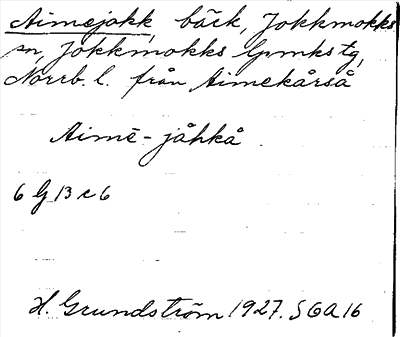 Aimejokk, bäck, Jokkmokks
sn, Jokkmokks lpmks tg,
Norrb. l. från Aimekårså
Aimē-jåhkå
6 G 13 c 6
H. Grundström 1927. SGA 16